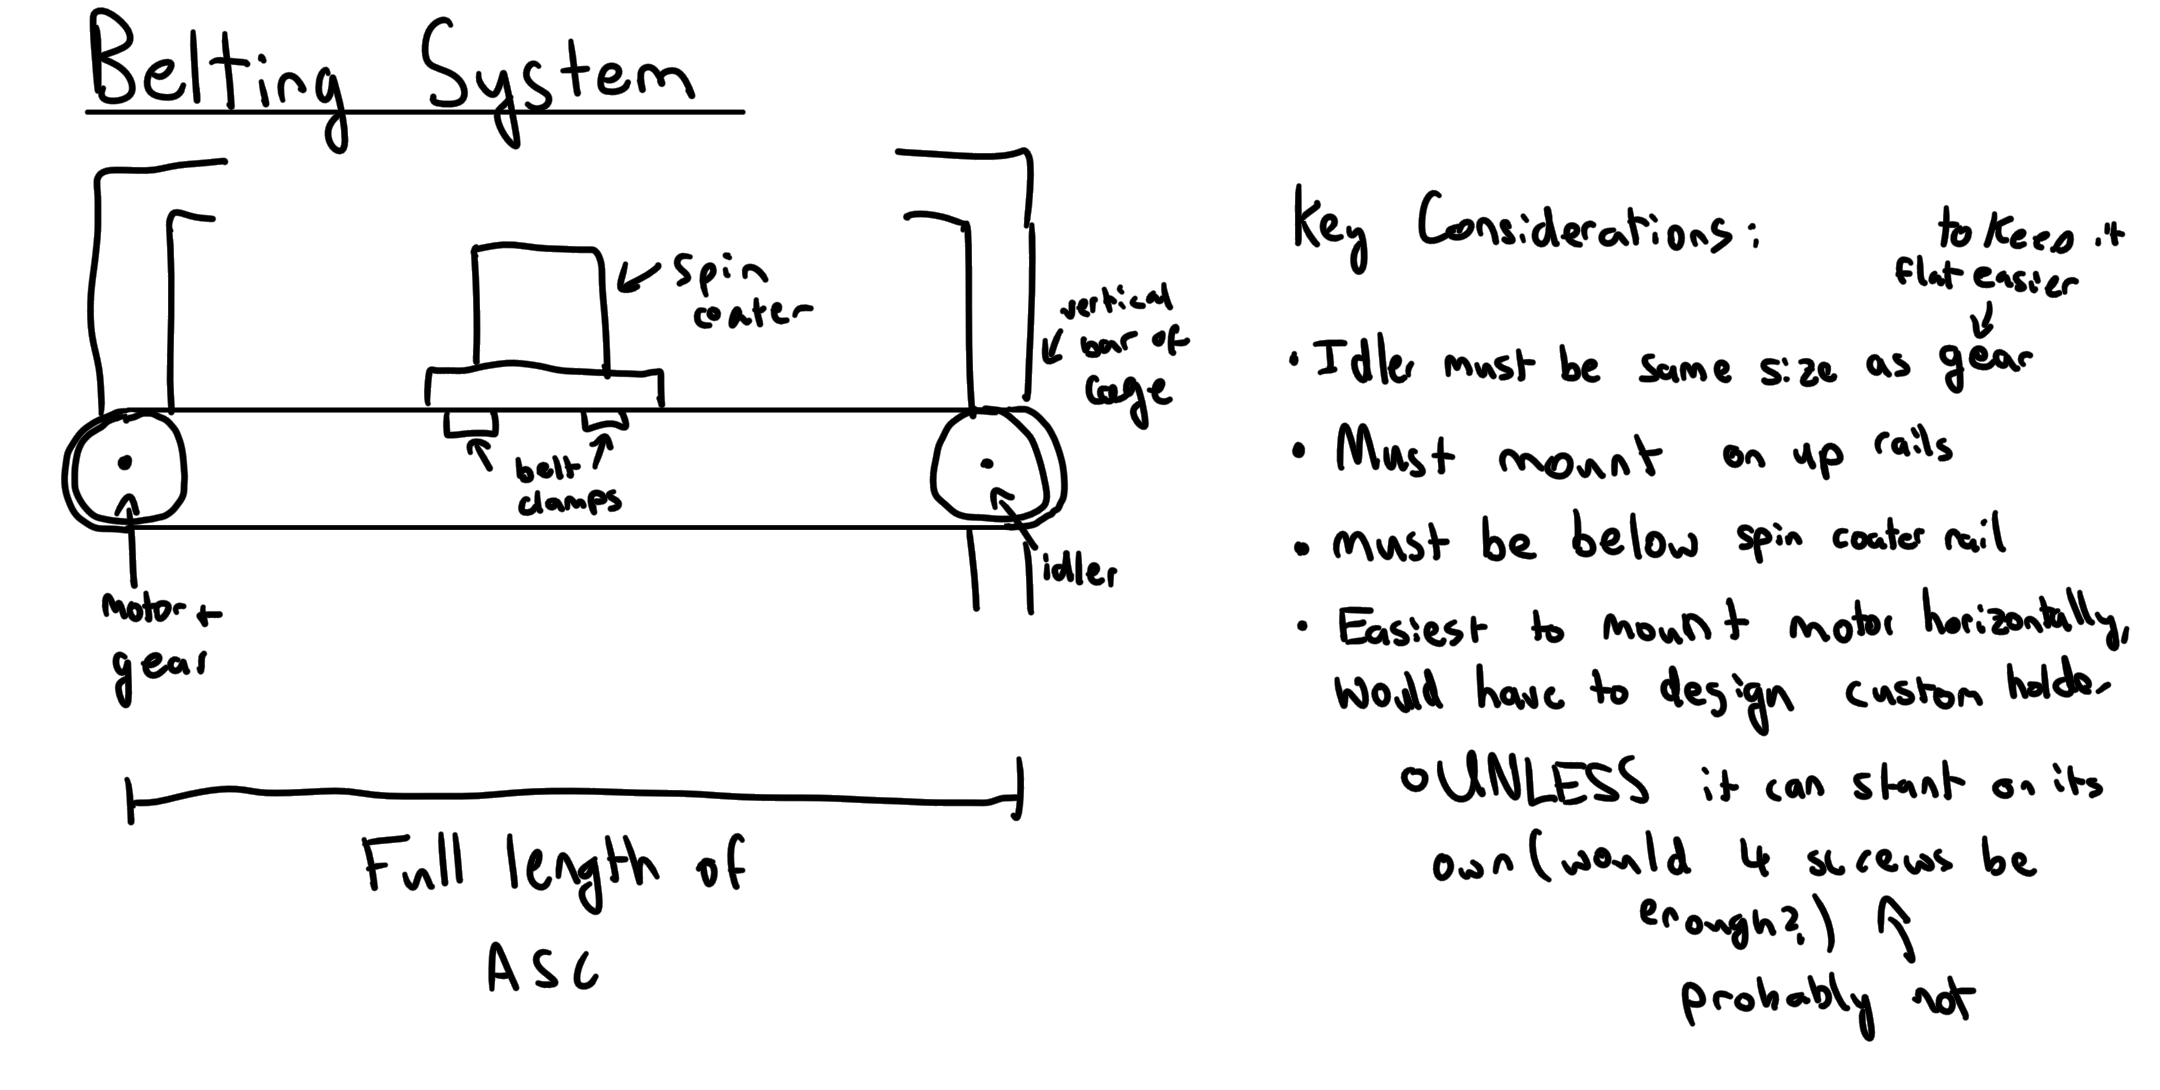 Belting System
spin
coater
vertical
bar of
cage
belt
clamps
idler
Motor +
gear
Full length of
ASC
Key Considerations:
to keep it
flat easier
• Idler must be same size as gear
• Must mount on up rails
• must be below spin coater rail
• Easiest to mount motor horizontally,
would have to design custom holder
○ UNLESS it can stant on its
own (would 4 screws be
enough?)
probably not